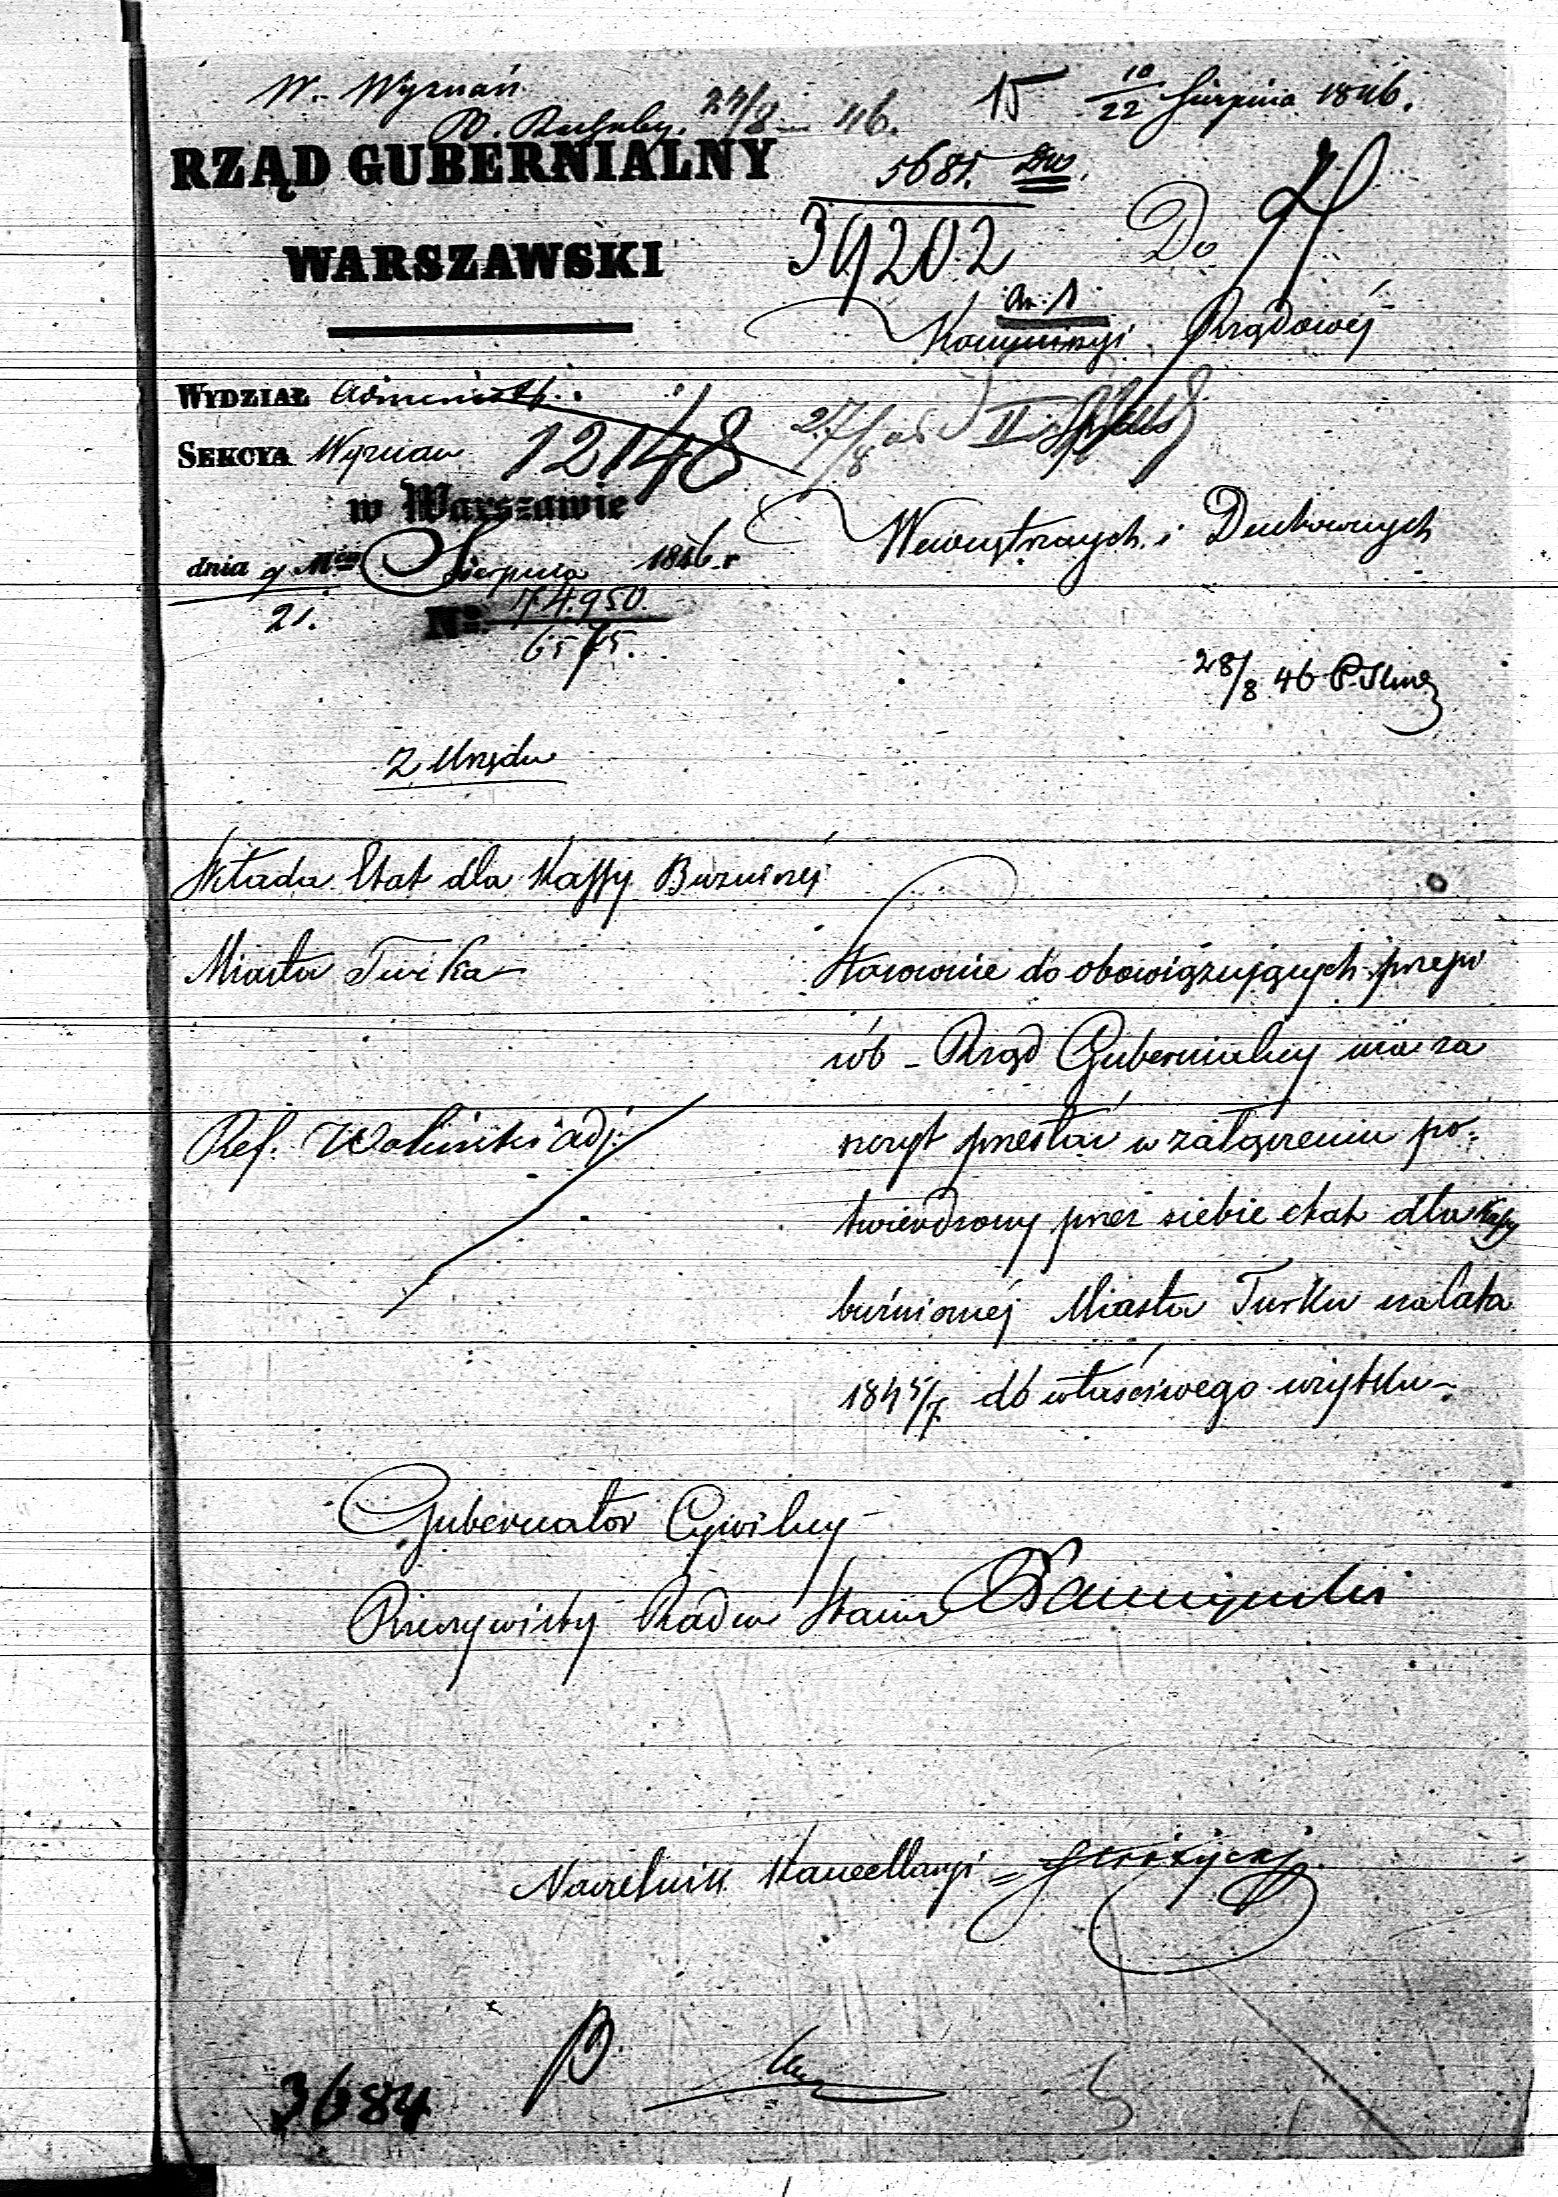 W. Wyznań
24/8 46. 15 10/22 Sierpnia 1846.
RZĄD GUBERNIALNY
5685.
WARSZAWSKI
39202 Do
An. 1
Kommissyi Rządowéj
WYDZIAŁ Administr.
SEKCYA Wyznań 12148
27/8 II
w Warszawie
Wewnętrznych i Duchownych
dnia 9/21. Mca Sierpnia 1846 r
No. 74.950.
6575.
28/8 46
Z Urzędu
Składa Etat dla Kassy Bużniczéj
Miasta Turka
Stosownie do obowiązujących przepi
sób - Rząd Gubernialny ma za
Ref. Woliński adj:
szczyt przesłać w załączeniu po:
twierdzony przez siebie etat dla Kassy
bużnicznéj Miasta Turku na lata
184 5/7 do właściwego użytku
Gubernator Cywilny
Rzeczywisty Radca Stanu
Naczelnik Kancellaryi
3684